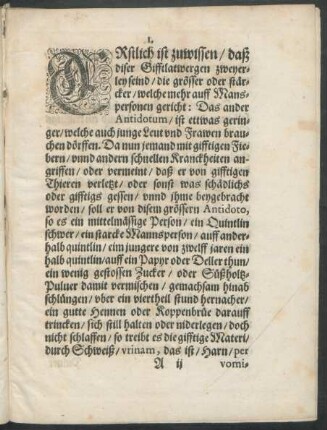 1.
ERstlich ist zuwissen / daß
diser Gifftlatwergen zweyer-
ley seind / die grösser oder stär-
cker / welche mehr auff Mans-
personen gericht: Das ander
Antidotum / ist ettwas gerin-
ger / welche auch junge Leut vnd Frawen brau-
chen dörffen. Da nun jemand mit gifftigen Fie-
bern / vnnd andern schnellen Kranckheiten an-
griffen / oder vermeint / daß er von gifftigen
Thieren verletzt / oder sonst was schädlichs
oder gifftigs gessen / vnnd ihme beygebracht
worden / soll er von disem grössern Antidoto,
so es ein mittelmässige Person / ein Quintlin
schwer / ein starcke Mannsperson / auff ander-
halb quintlin / eim jungere von zwelff jaren ein
halb quintlin / auff ein Papyr oder Deller thun /
ein wenig gestossen Zucker / oder Süßholtz-
Puluer damit vermischen / gemachsam hinab
schlüngen / vber ein viertheil stund hernacher /
ein gutte Hennen oder Koppenbrüe darauff
trincken / sich still halten oder niderlegen / doch
nicht schlaffen / so treibt es die gifftige Materi /
durch Schweiß / vrinam, das ist / Harn / per
A ij vomi-